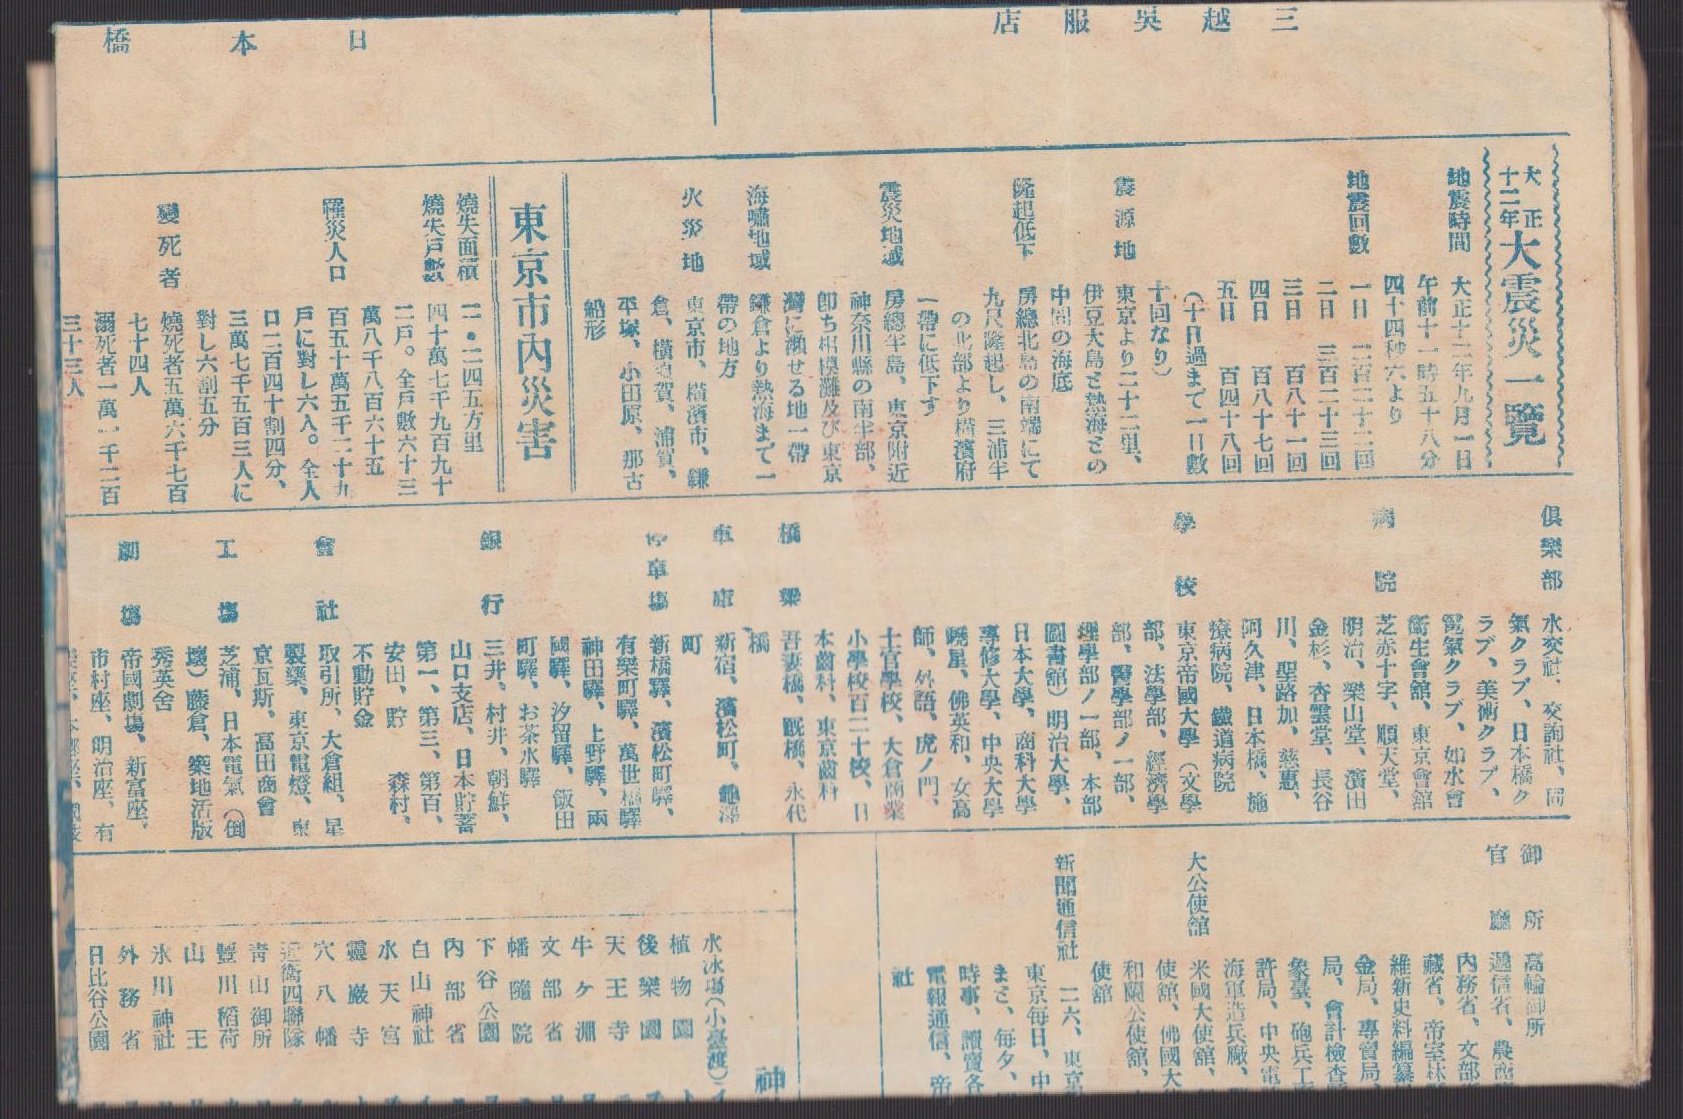 三越呉服店
日本橋
大正十二年大震災一覽
地震時間
大正十二年九月一日
午前十一時五十八分
四十四秒六より
地震回數
一日 二百二十二回
二日 三百二十三回
三日 百八十一回
四日 百八十七回
五日 百四十八回
(十日過まで一日數
十回なり)
震源地
東京より二十二里、
伊豆大島と熱海との
中間の海底
隆起低下
房總北島の南端にて
九尺隆起し、三浦半
の北部より橫濱府
一帶に低下す
震災地域
房總半島、東京附近
神奈川縣の南半部、
卽ち相模灘及び東京
灣に瀕せる地一帶
海嘯地域
鎌倉より熱海まで一
帶の地方
火災地
東京市、橫濱市、鎌
倉、橫須賀、浦賀、
平塚、小田原、那古
船形
東京市內災害
燒失面積
一一・二四五方里
燒失戶數
四十萬七千九百九十
二戶。全戶數六十三
萬八千八百六十五
罹災人口
百五十萬五千二十九
戶に對し六人。全人
口二百四十割四分、
三萬七千五百三人に
對し六割五分
變死者
燒死者五萬六千七百
七十四人
溺死者一萬一千二百
三十三人
俱樂部
水交社、交詢社、同
氣クラブ、日本橋ク
ラブ、美術クラブ、
電氣クラブ、如水會
衞生會館、東京會館
病院
芝赤十字、順天堂、
明治、樂山堂、濱田
金杉、杏雲堂、長谷
川、聖路加、慈惠、
阿久津、日本橋、施
療病院、鐵道病院
學校
東京帝國大學(文學
部、法學部、經濟學
部、醫學部ノ一部、
理學部ノ一部、本部
圖書館)明治大學、
日本大學、商科大學
專修大學、中央大學
曉星、佛英和、女高
師、外語、虎ノ門、
士官學校、大倉商業
小學校百二十校、日
本齒科、東京齒科
橋梁
吾妻橋、厩橋、永代
橋
車庫
新宿、濱松町、龜澤
町
停車塲
新橋驛、濱松町驛、
有樂町驛、萬世橋驛
神田驛、上野驛、兩
國驛、汐留驛、飯田
町驛、お茶水驛
銀行
三井、村井、朝鮮、
山口支店、日本貯蓄
第一、第三、第百、
安田、貯 森村、
不動貯金
會社
取引所、大倉組、星
製藥、東京電燈、東
京瓦斯、高田商會
工塲
芝浦、日本電氣(倒
壞)藤倉、築地活版
秀英舍
劇塲
帝國劇塲、新富座、
市村座、明治座、有
御所
高輪御所
官廳
遞信省、農商
內務省、文部
藏省、帝室林
維新史料編纂
金局、專賣局、
局、會計檢查
象臺、砲兵工
許局、中央電
海軍造兵廠、
大公使館
米國大使館、
使館、佛國大
和蘭公使館、
使館
新聞通信社
二六、東京
東京每日、中
まと、每夕、
時事、讀賣各
電報通信、帝
社
神
水泳場(小臺渡)
植物園
後樂園
天王寺
牛ケ淵
文部省
幡隨院
下谷公園
內部省
白山神社
水天宮
靈巖寺
穴八幡
近衞四聯隊
靑山御所
豐川稻荷
山王
氷川神社
外務省
日比谷公園